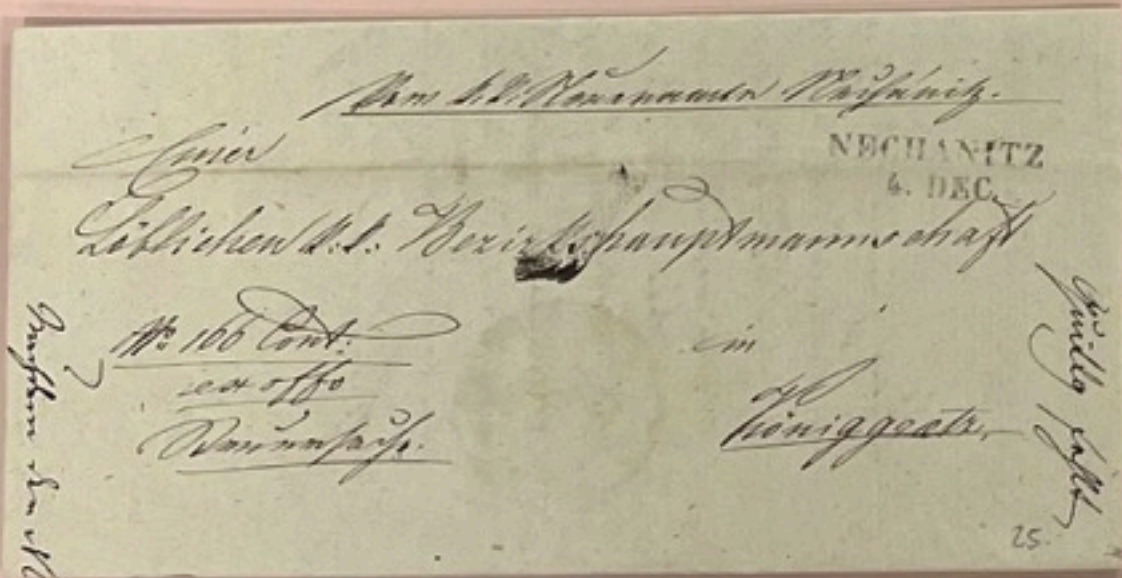 Vom k.k. Steueramte Nechanitz.
NECHANITZ
4. DEC.
Einer
Löblichen k.k. Bezirkshauptmannschaft
No 166 Cont:
ex offo
Steuersache.
in
Königgratz
fehlt
25.